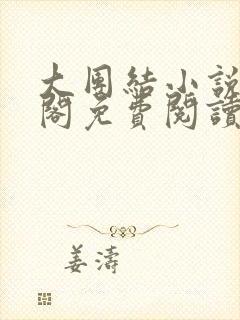 大團結小說
閣免費閱讀
姜濤